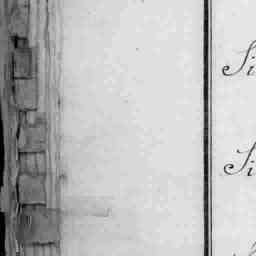 Si
Si